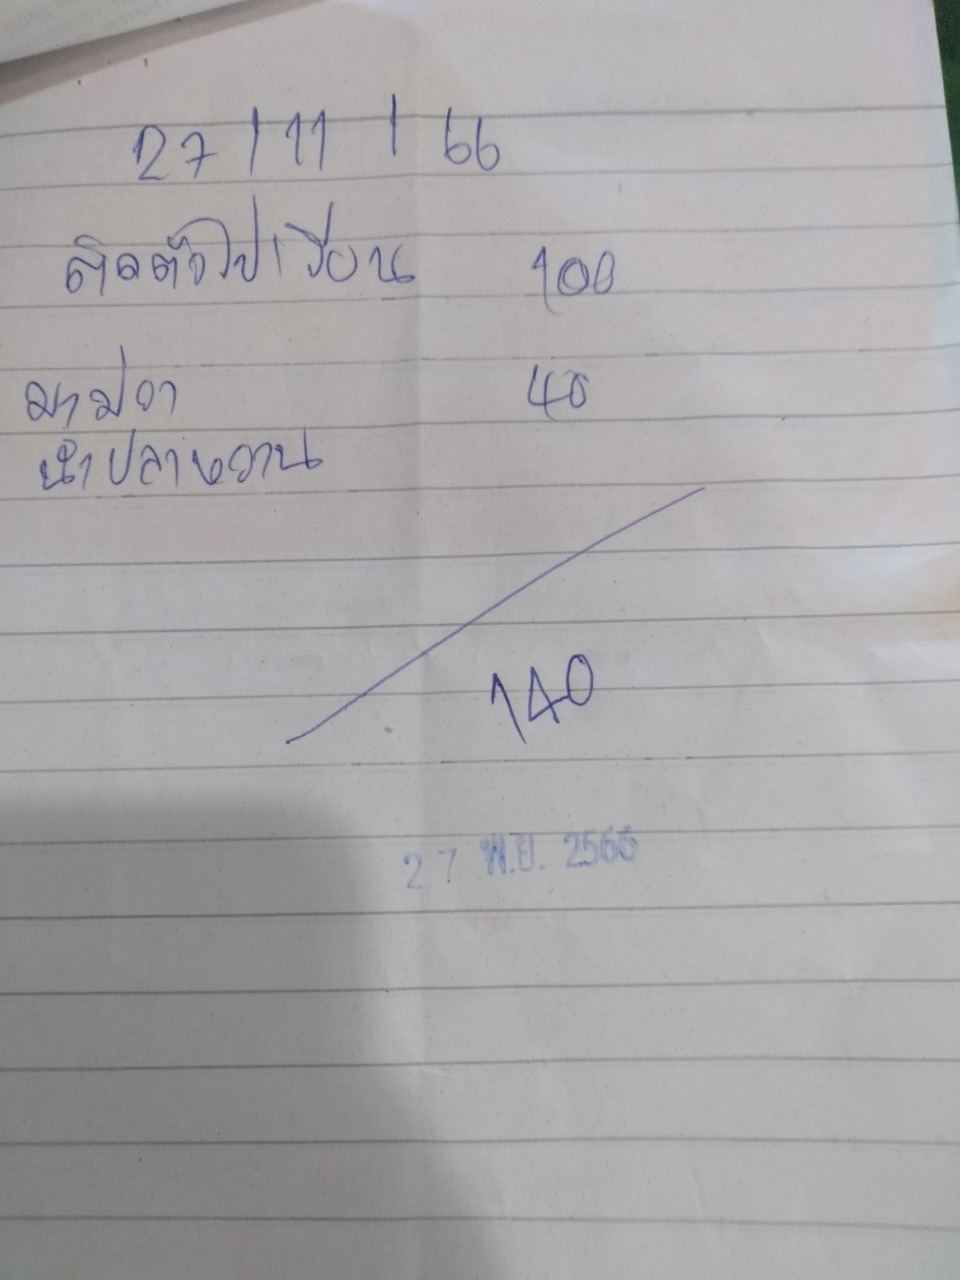 27/11/66
ติดตัวไปเรียน 100
มาม่วา 40
น้ำปลาหวาน
140
27 พ.ย. 2566